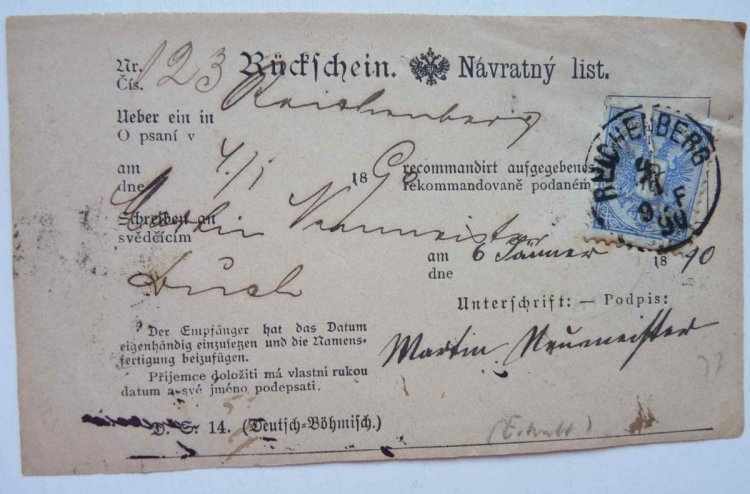 Nr. 123 Rückschein. Návratný list.
Čís.
Ueber ein in Reichenberg
O psaní v
am 4/1 1890 recommandirt aufgegebenes
dne rekommandovaně podaném
Schreiben an Martin Neumeister
svědčícím
am 6 Jänner 1890
dne
Unterschrift: — Podpis:
Martin Neumeister
Der Empfänger hat das Datum
eigenhändig einzusetzen und die Namens-
fertigung beizufügen.
Příjemce doložiti má vlastní rukou
datum a své jméno podepsati.
D. S. 14. (Deutsch-Böhmisch.)
REICHENBERG